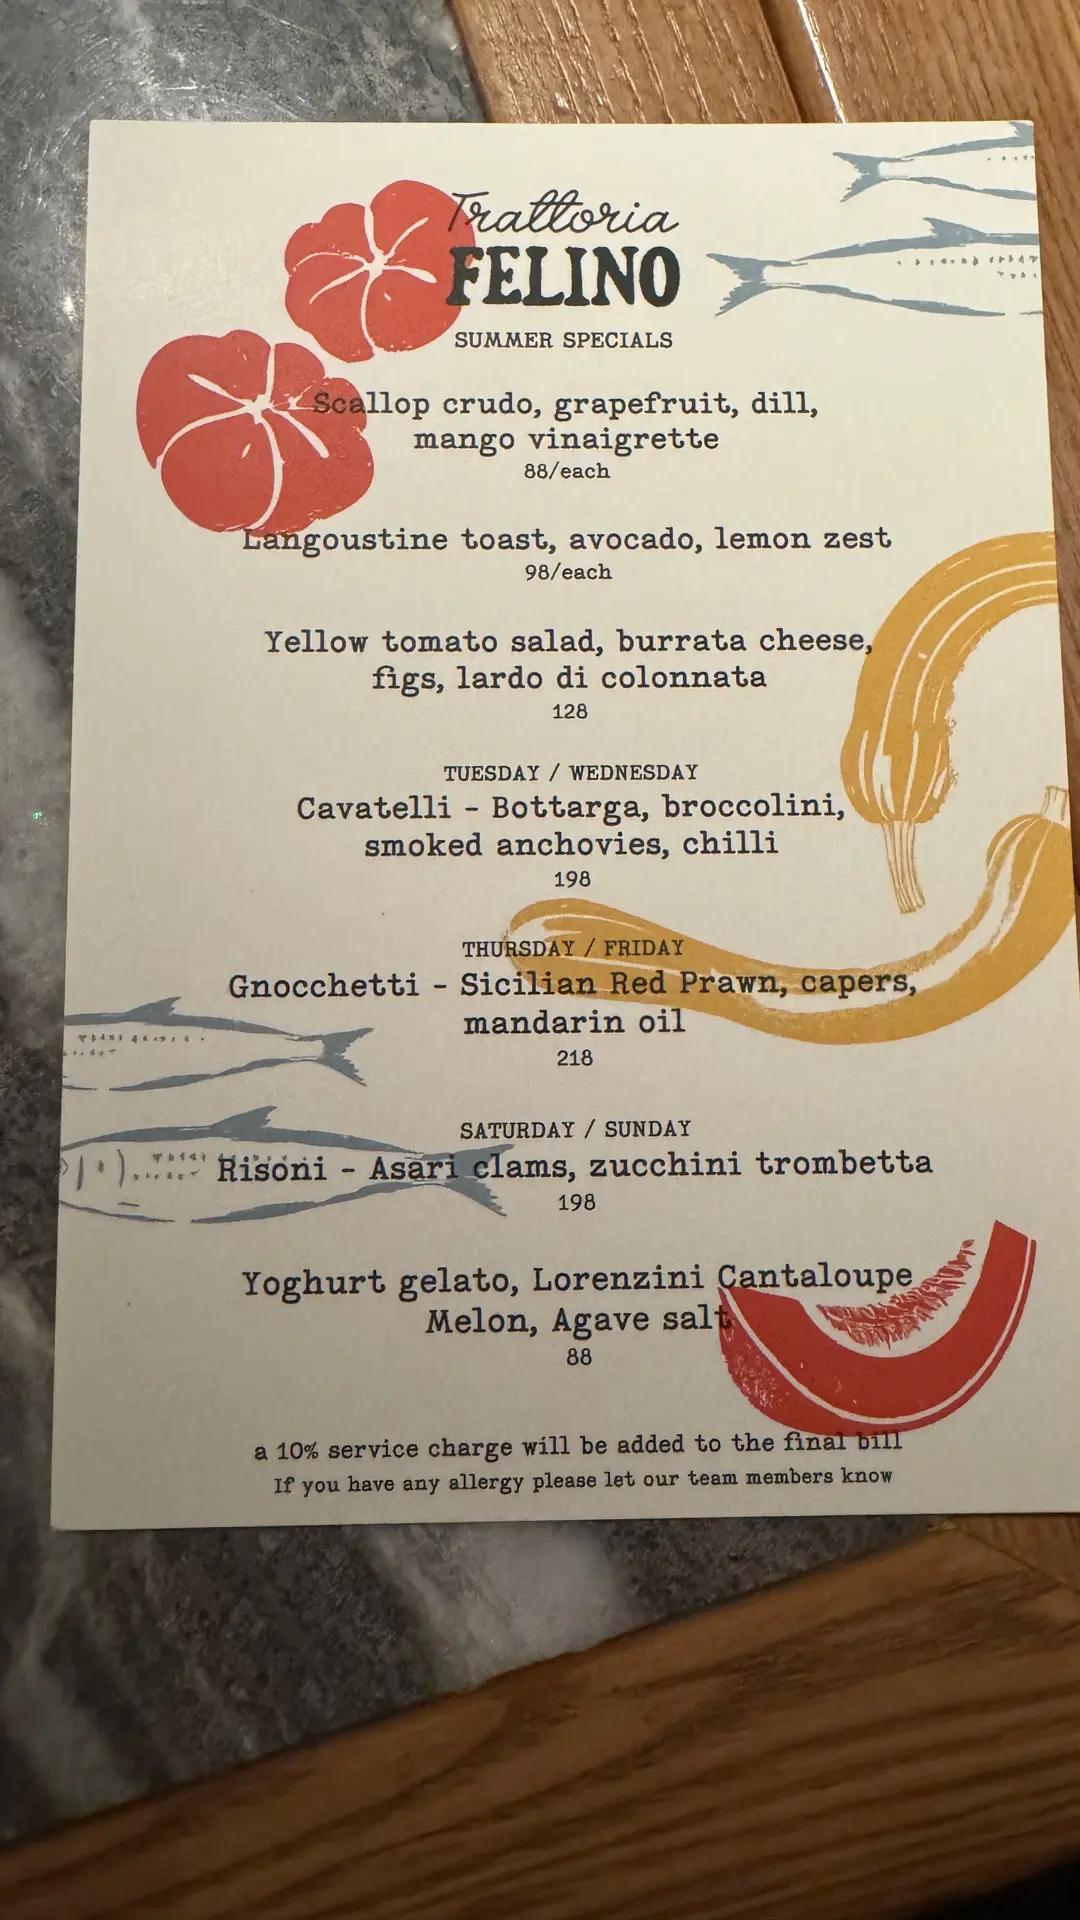 Trattoria
FELINO
SUMMER SPECIALS
Scallop crudo, grapefruit, dill,
mango vinaigrette
88/each
Langoustine toast, avocado, lemon zest
98/each
Yellow tomato salad, burrata cheese,
figs, lardo di colonnata
128
TUESDAY / WEDNESDAY
Cavatelli - Bottarga, broccolini,
smoked anchovies, chilli
198
THURSDAY / FRIDAY
Gnocchetti - Sicilian Red Prawn, capers,
mandarin oil
218
SATURDAY / SUNDAY
Risoni - Asari clams, zucchini trombetta
198
Yoghurt gelato, Lorenzini Cantaloupe
Melon, Agave salt
88
a 10% service charge will be added to the final bill
If you have any allergy please let our team members know